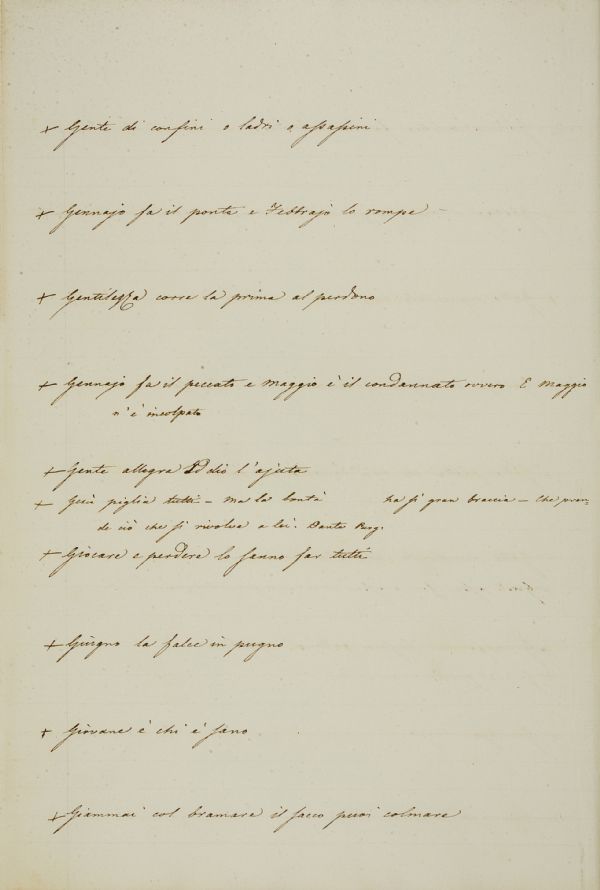 + Gente di confini o ladri o assassini
+ Gennajo fa il ponte e Febbrajo lo rompe
+ Gentilezza corre la prima al perdono
+ Gennajo fa il peccato e Maggio è il condannato ovvero E Maggio
n'è incolpato
+ Gente allegra Iddio l'ajuta
+ piglia tutti - Ma la bontà ha sì gran braccia - Che pren,
de ciò che si rivolve a lei. Dante Purg.
+ Giocare e perdere lo sanno far tutti
+ Giugno la falce in pugno
+ Giovane è chi è sano
+ Giammai col bramare il sacco puoi colmare